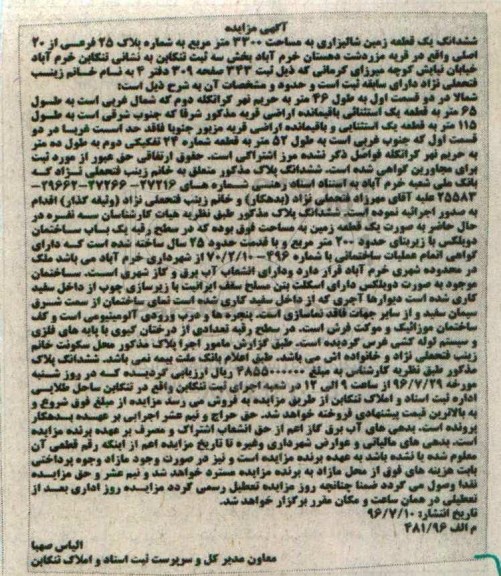 آگهی مزایده
ششدانگ یک قطعه زمین شالیزاری به مساحت ۳۳۰۰ متر مربع به شماره پلاک ۲۵ فرعی از ۲۰
اصلی واقع در قریه مزردشت دهستان خرم آباد بخش سه ثبت تنکابن به نشانی تنکابن خرم آباد
خیابان نیایش کوچه میرزای کرمانی که ذیل ثبت ۳۴۳ صفحه ۳۰۹ دفتر ۳ به نام خانم زینب
فتحعلی نژاد دارای سابقه ثبت است و حدود و مشخصات آن به شرح ذیل است:
شمالا در دو قسمت اول به طول ۴۶ متر به حریم نهر کراتکله دوم که شمال غربی است به طول
۶۵ متر به قطعه یک استثنائی باقیمانده اراضی قریه مذکور شرقا که جنوب شرقی است به طول
۱۱۵ متر به قطعه یک استثنایی و باقیمانده اراضی قریه مزبور جنوبا فاقد حد است غربا در دو
قسمت اول که جنوب غربی است به طول ۵۲ متر به قطعه شماره ۲۴ تفکیکی دوم به طول ده متر
به حریم نهر کراتکله فواصل ذکر نشده مرز اشتراکی است. حقوق ارتفاقی حق عبور از مورد ثبت
برای مجاورین گواهی شده است. ششدانگ پلاک مذکور متعلق به خانم زینب فتحعلی نژاد که
بانک ملی شعبه خرم آباد به استناد اسناد رهنی شماره های ۲۷۲۱۶-۲۷۲۶۶-۲۹۶۶۲-
۲۵۵۸۳ علیه آقای مهرزاد فتحعلی نژاد (بدهکار) و خانم زینب فتحعلی نژاد (وثیقه گذار) اقدام
به صدور اجرائیه نموده است. ششدانگ پلاک مذکور طبق نظریه هیات کارشناسان سه نفره در
حال حاضر به صورت یک قطعه زمین به مساحت فوق بوده که در سطح رقبه یک باب ساختمان
دوبلکس با زیربنای حدود ۲۰۰ متر مربع و با قدمت حدود ۲۵ سال ساخته شده است که دارای
گواهی اتمام عملیات ساختمانی با شماره ۴۹۶-۷۰/۲/۱۰ از شهرداری خرم آباد می باشد ملک
در محدوده شهری خرم آباد قرار دارد ودارای انشعاب آب برق و گاز شهری است. ساختمان
موجود به صورت دوبلکس دارای اسکلت بتن مسلح سقف ایرانیت با زیرسازی چوب از داخل سفید
کاری شده است دیوارها آجری که از داخل سفید کاری شده است نمای ساختمان از سمت شرق
سیمان سفید و از سایر جهات فاقد نماسازی است. پنجره ها و درب ورودی آلومینیومی است و کف
ساختمان موزائیک و موکت فرش است. در سطح رقبه تعدادی از درختان کیوی با پایه های فلزی
و سیستم لوله کشی غرس گردیده است. طبق گزارش مامور اجرا پلاک مذکور محل سکونت خانم
زینب فتحعلی نژاد و خانواده اش می باشد. طبق اعلام بانک ملت بیمه نمی باشد. ششدانگ پلاک
مذکور طبق نظریه کارشناس به مبلغ ۴۸۵۵۰۰۰۰۰۰ ریال ارزیابی گردیده که در روز شنبه
مورخه ۹۶/۷/۲۹ از ساعت ۹ الی ۱۲ در شعبه اجرای ثبت تنکابن واقع در تنکابن ساحل طلایی
اداره ثبت اسناد و املاک تنکابن از طریق مزایده به فروش می رسد مزایده از مبلغ فوق شروع و
به بالاترین قیمت پیشنهادی فروخته خواهد شد. حق حراج و نیم عشر اجرایی بر عهده بدهکار
پرونده است. بدهی های آب برق گاز اعم از حق انشعاب اشتراک و مصرف بر عهده برنده مزایده
است. بدهی های مالیاتی و عوارض شهرداری وغیره تا تاریخ مزایده اعم از اینکه رقم قطعی آن
معلوم شده یا نشده باشد به عهده برنده مزایده است و نیز در صورت وجود مازاد وجوه پرداختی
بابت هزینه های فوق از محل مازاد به برنده مزایده مسترد خواهد شد و نیم عشر و حق مزایده
نقدا وصول می گردد ضمنا چنانچه روز مزایده تعطیل رسمی گردد مزایده روز اداری بعد از
تعطیلی در همان ساعت و مکان مقرر برگزار خواهد شد.
تاریخ انتشار: ۹۶/۷/۱۰
م الف ۴۸۱/۹۶
الیاس صهبا
معاون مدیر کل و سرپرست ثبت اسناد و املاک تنکابن